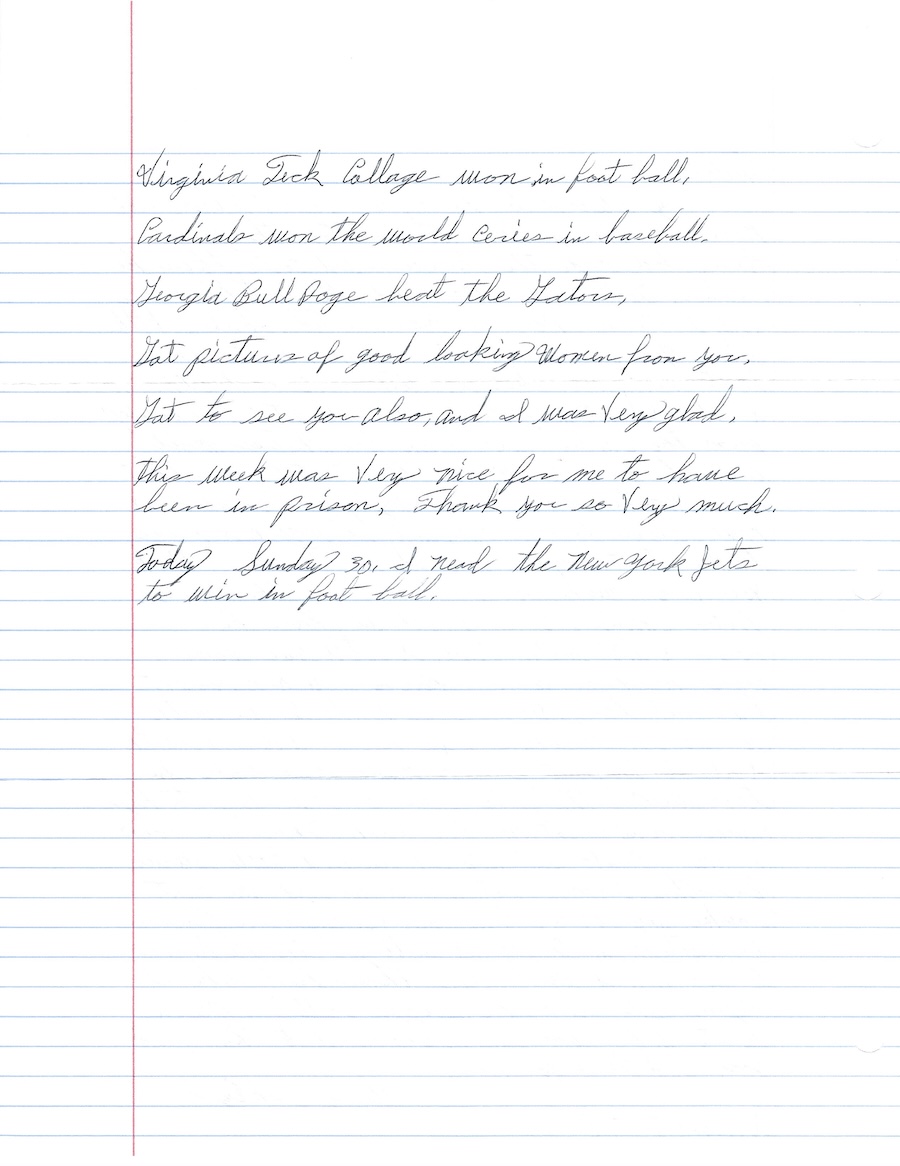 Virginia Teck Collage won in foot ball,
Cardinals won the world ceries in baseball.
Georgia Bull Doge beat the Gators,
Got pictures of good looking Women fron you,
Got to see you also, and I was Very glad,
this week was Very nice for me to have
been in prison, Thank you so Very much.
Today Sunday 30, I need the New York Jets
to win in foot ball.